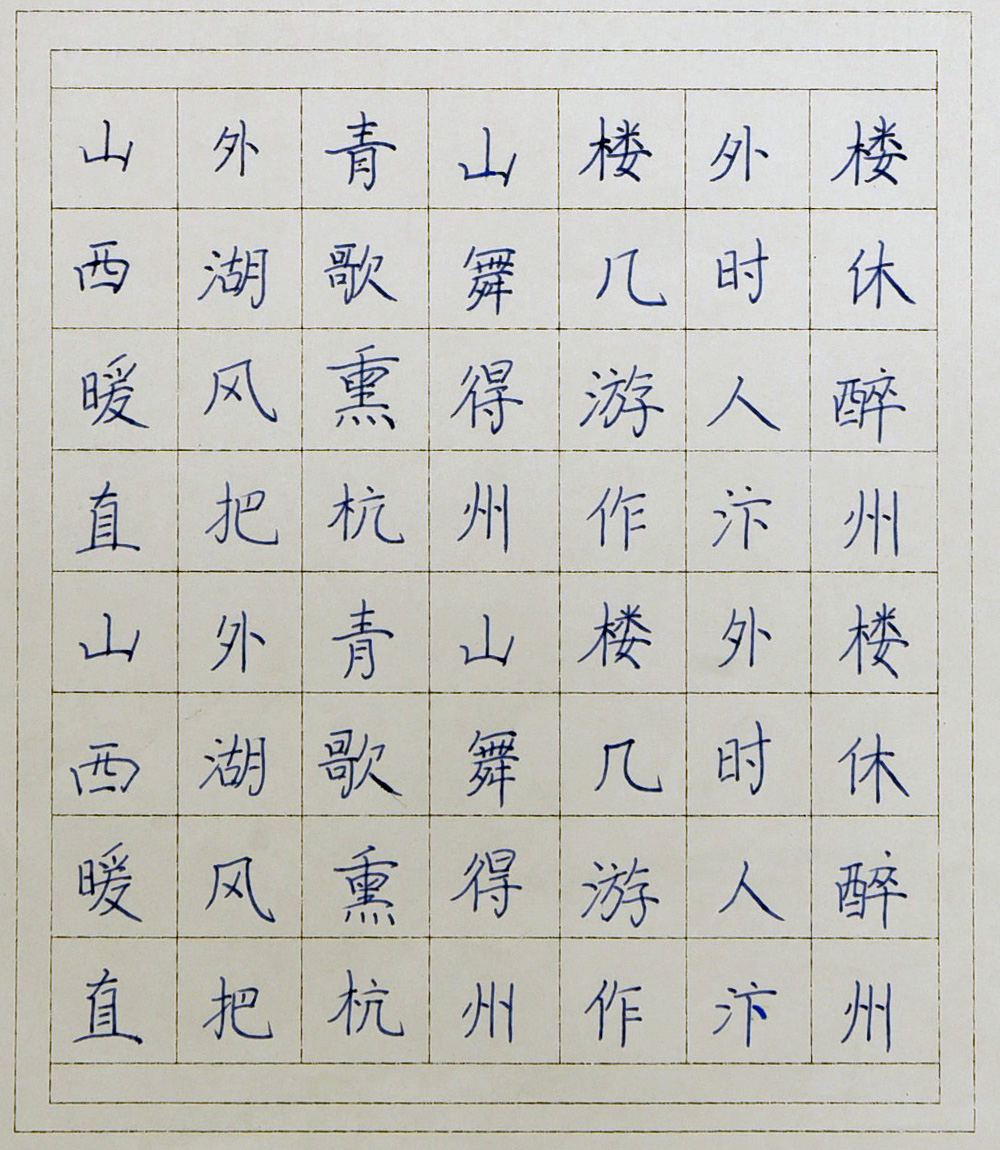 山外青山楼外楼
西湖歌舞几时休
暖风熏得游人醉
直把杭州作汴州
山外青山楼外楼
西湖歌舞几时休
暖风熏得游人醉
直把杭州作汴州